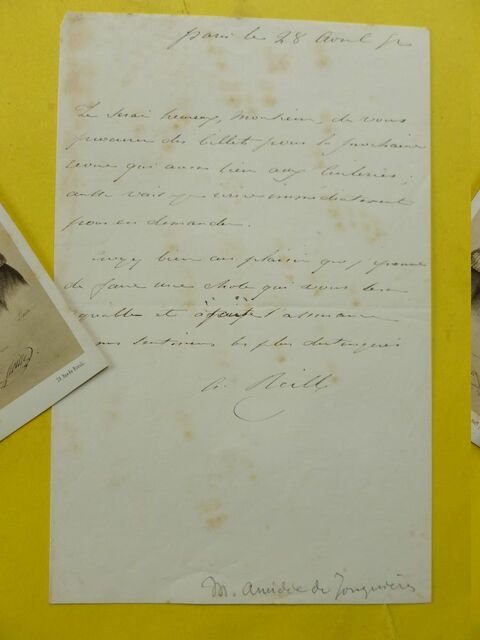 Paris le 28 Avril 52
Je serai heureux, Monsieur, de vous
procurer des billets pour la prochaine
revue qui aura lieu aux Tuileries;
immédiatement
pour en demander.
croyez bien au plaisir que j'éprouve
de faire une chose qui vous sera
agréable et l'assurance
sentimens les plus distingués
Reille
M. Amédée de Jonquières